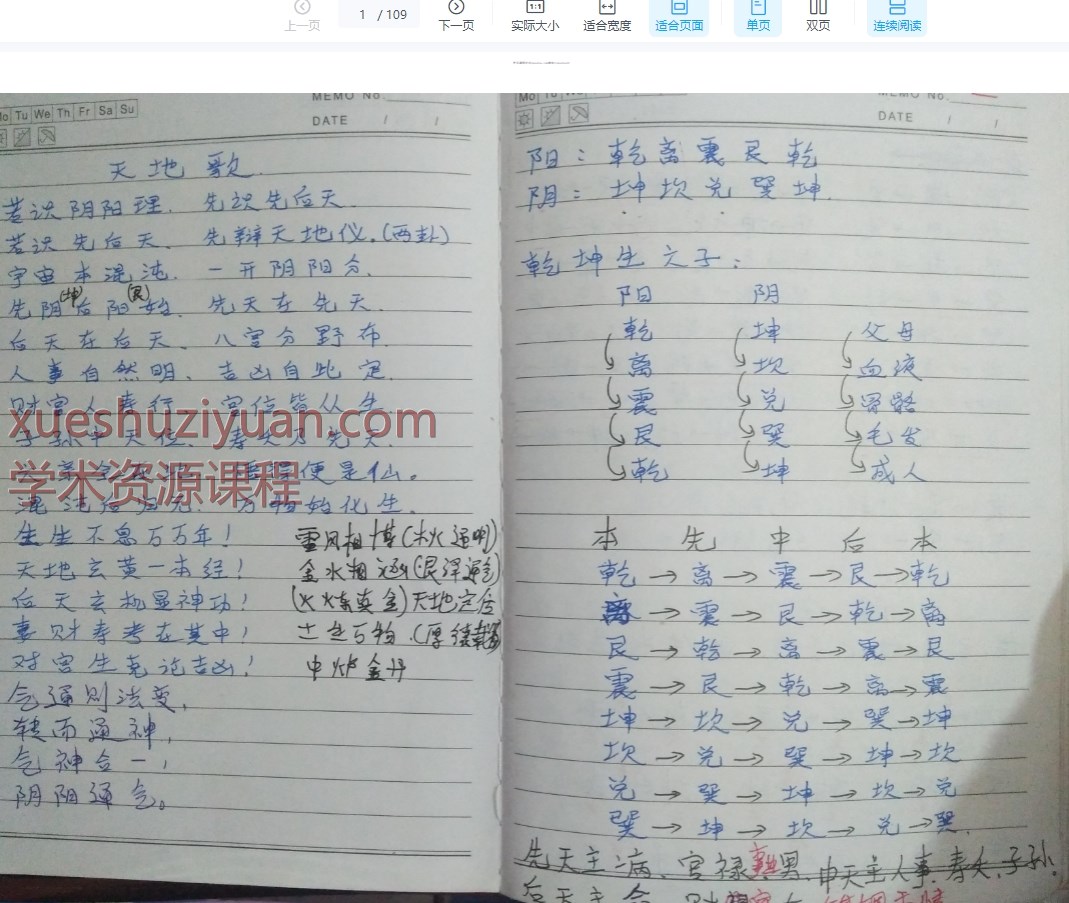 上一页
1 / 109
下一页
实际大小
适合宽度
适合页面
单页
双页
连续阅读
Mo Tu We Th Fr Sa Su
MEMO No.
DATE / /
天地歌
若识阴阳理. 先识先后天.
若识先后天. 先辩天地仪.(两卦)
宇宙本混沌. 一开阴阳分.
先阴(坤)后阳(艮)始. 先天在先天.
后天在后天. 八宫分野布.
人事自然明. 吉凶自此定.
xueshuziyuan.com
学术资源课程
便是仙。
万物始化生.
生生不息万万年!
天地玄黄一本经!
后天玄机显神功!
妻财寿考在其中!
对宫生克论吉凶!
气通则法变,
转而通神,
气神合一,
阴阳通气。
雷风相搏(木火通明)
金水相涵
(火炼真金)天地定位
土生万物
中炉金丹
MEMO No.
DATE / /
阳: 乾离震艮乾
阴: 坤坎兑巽坤.
乾坤生六子:
阳 阴
乾 坤 父母
离 坎 血液
震 兑 骨骼
艮 巽 毛发
乾 坤 成人
本 先 中 后 本
乾→离→震→艮→乾
离→震→艮→乾→离
艮→乾→离→震→艮
震→艮→乾→离→震
坤→坎→兑→巽→坤
坎→兑→巽→坤→坎
兑→巽→坤→坎→兑
巽→坤→坎→兑→巽.
先天主病、官禄 男. 中天主人事.寿夭.子孙.
后天主